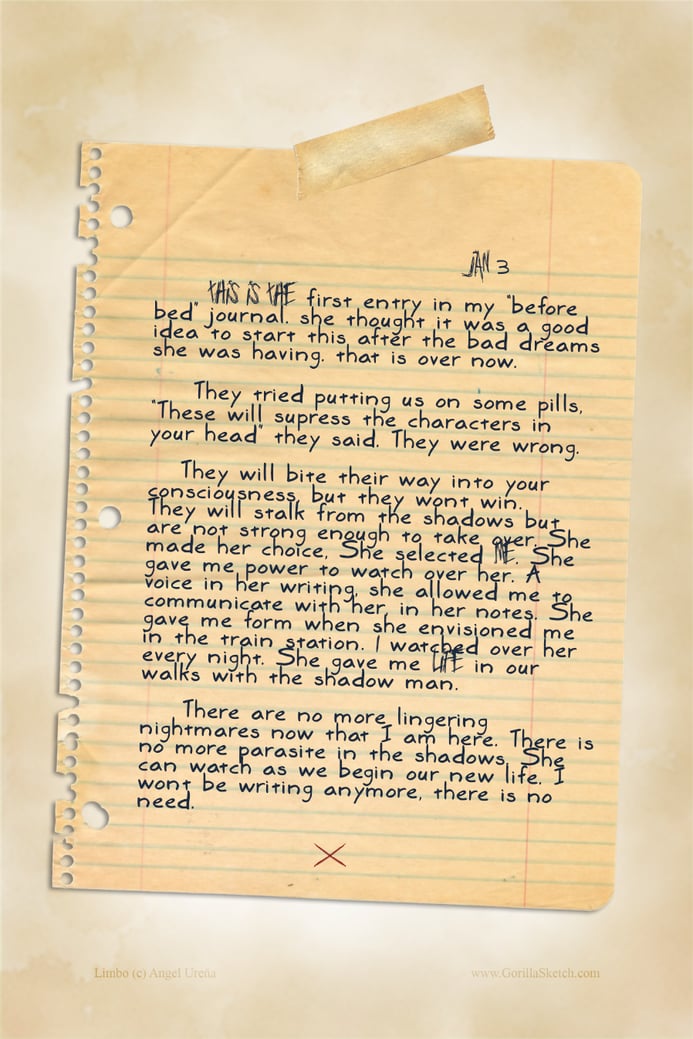 JAN 3
THIS IS THE first entry in my "before
bed" journal. she thought it was a good
idea to start this after the bad dreams
she was having. that is over now.
They tried putting us on some pills,
"These will supress the characters in
your head" they said. They were wrong.
They will bite their way into your
consciousness, but they wont win.
They will stalk from the shadows but
are not strong enough to take over. She
made her choice, She selected ME. She
gave me power to watch over her. A
voice in her writing, she allowed me to
communicate with her, in her notes. She
gave me form when she envisioned me
in the train station. I watched over her
every night. She gave me LIFE in our
walks with the shadow man.
There are no more lingering
nightmares now that I am here. There is
no more parasite in the shadows. She
can watch as we begin our new life. I
wont be writing anymore, there is no
need.
X
Limbo (c) Angel Ureña
www.GorillaSketch.com